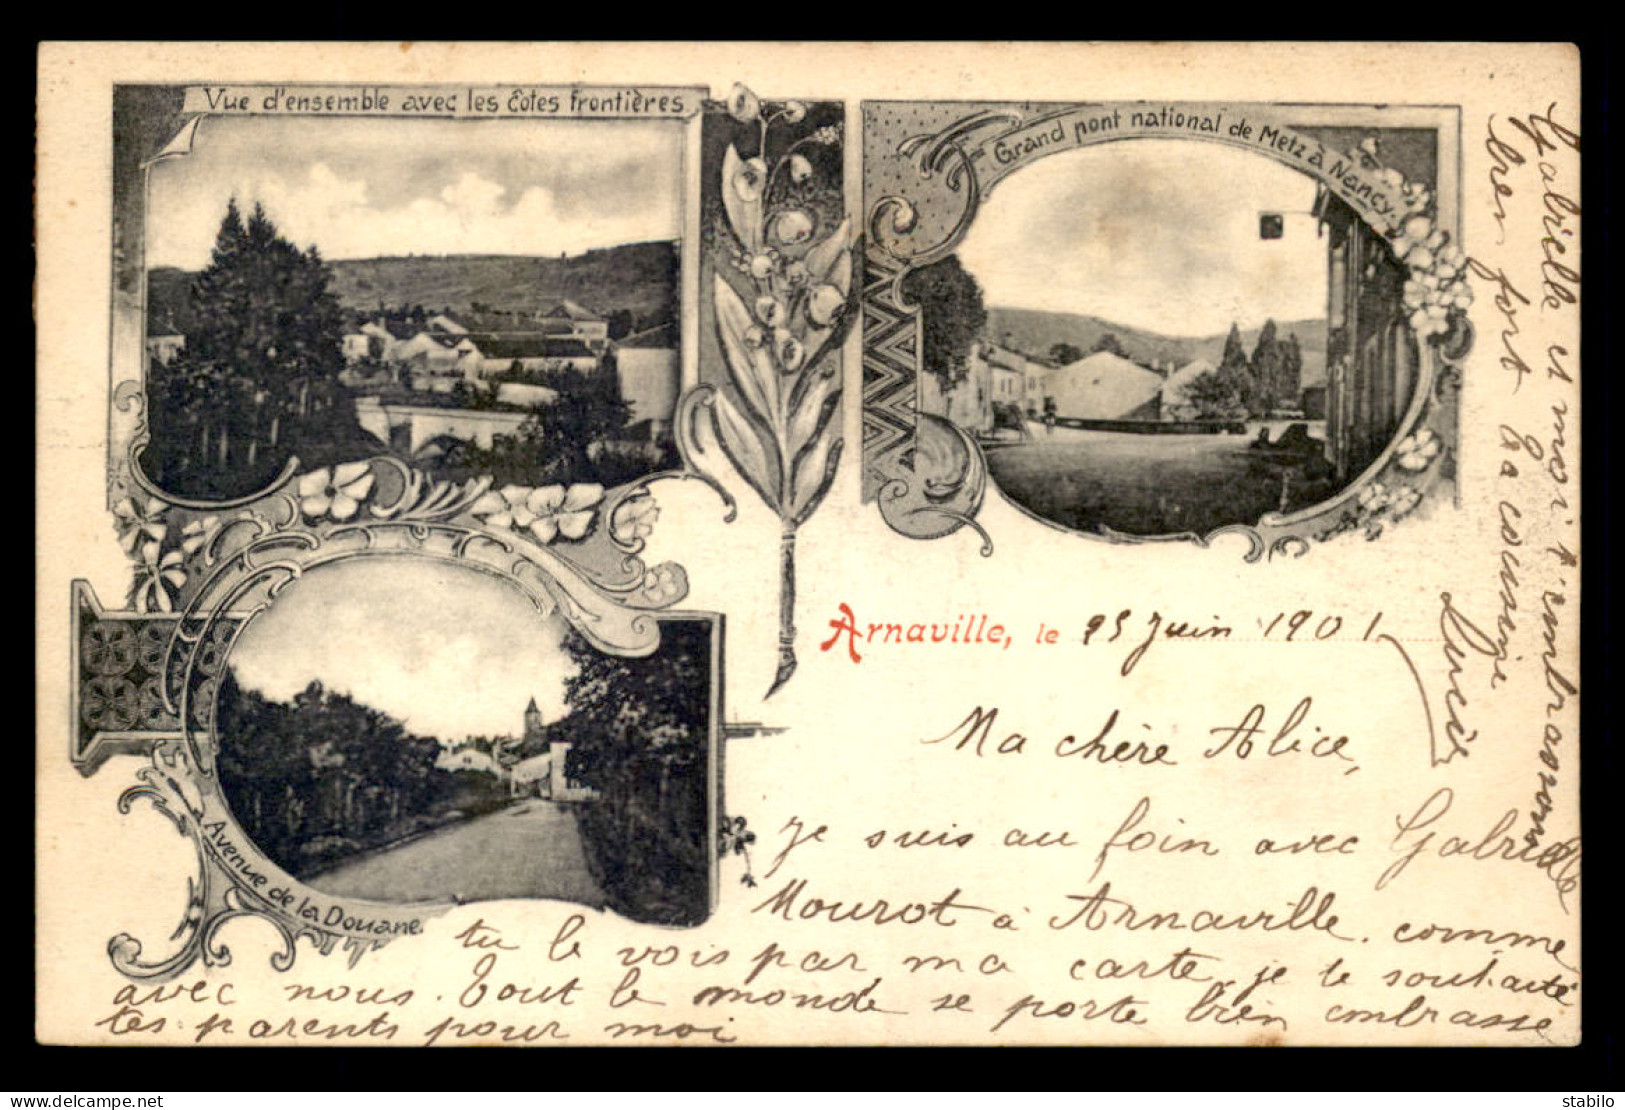 Vue d'ensemble avec les Côtes frontières
Grand pont national de Metz à Nancy.
Avenue de la Douane.
Arnaville, le 25 Juin 1901
Ma chère Alice,
je suis au foin avec Gabrielle
Mourot à Arnaville. comme
tu le vois par ma carte, je te souhaite
avec nous. Tout le monde se porte bien embrasse
tes parents pour moi
Gabrielle et moi t'embrassons
bien fort Ta cousine
Lucie
delcampe.net
stabilo